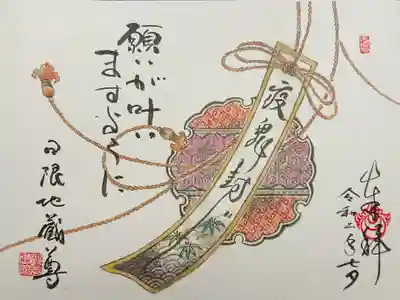 令和二年七夕
疫鬼封じ
願いが叶い
ますように
日限地蔵尊